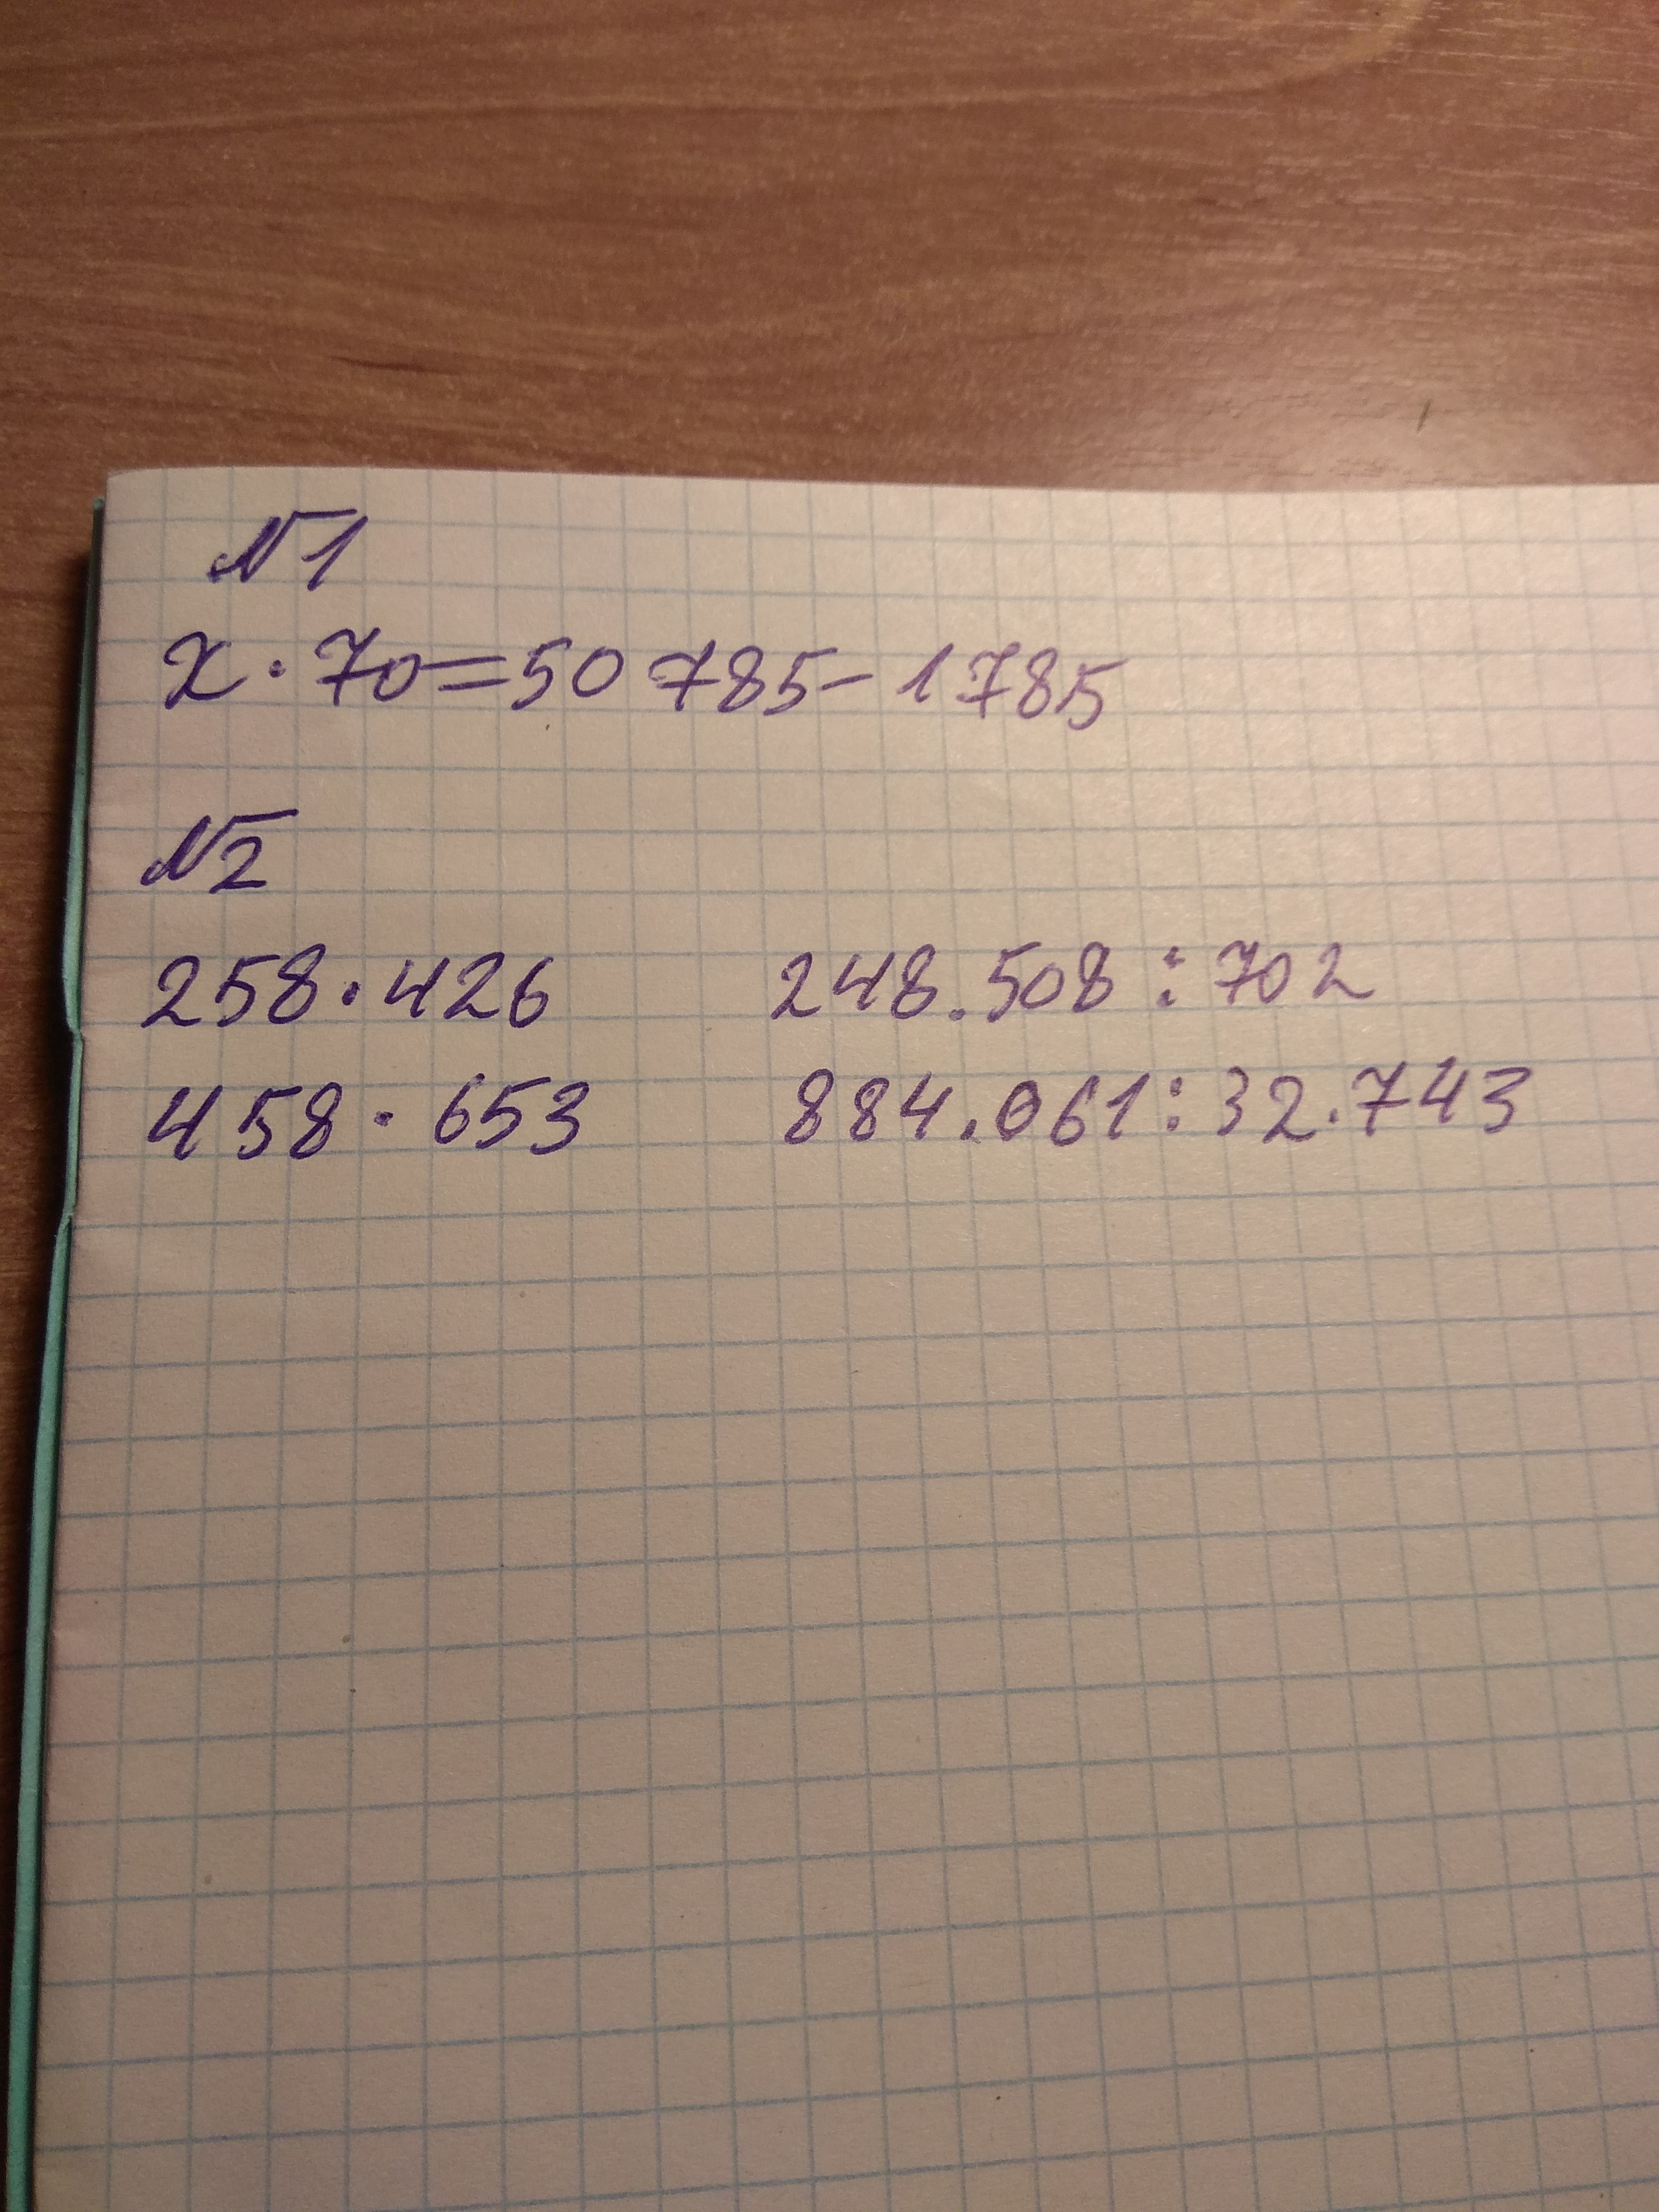 №1
x · 70 = 50 785 - 1 785
№2
258 · 426 248.508 : 702
458 · 653 884.061 : 32.743